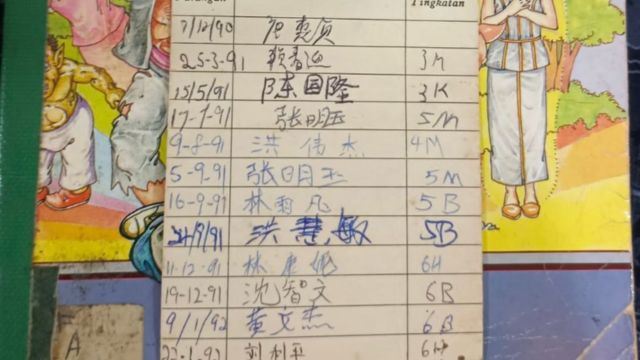 Tingkatan
7/12/90
25-3-91 3M
15/5/91 陈国隆 3K
17-7-91 张明玉 5M
9-8-91 洪伟杰 4M
5-9-91 张明玉 5M
16-9-91 林雨凡 5B
24/9/91 洪慧敏 5B
11-12-91 林 6H
19-12-91 沈智文 6B
9/1/92 黄文杰 6B
22-1-92 刘利平 6H
A